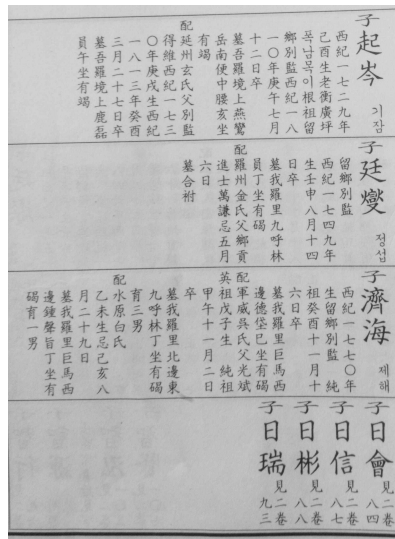 子起岑 기잠
西紀一七二九年
己酉生老衡廣坪
폭남목이根祖留
鄉別監西紀一八
一〇年庚午七月
十二日卒
墓吾羅境上燕鷰
岳南便中腰亥坐
有碣
配延州玄氏父別監
得維西紀一七三
〇年庚戌生西紀
一八一三年癸酉
三月二十七日卒
墓吾羅境上鹿磊
員午坐有碣
子廷燮 정섭
留鄉別監
西紀一七四九年
生壬申八月十四
日卒
墓我羅里九呼林
員丁坐有碣
配羅州金氏父鄉貢
進士萬謙忌五月
六日
墓合祔
子濟海 제해
西紀一七七〇年
生留鄉別監 純
祖癸酉十一月十
六日卒
墓我羅里巨馬西
邊德垈巳坐有碣
配軍威吳氏父光斌
英祖戊子生 純祖
甲午十一月二日
卒
墓我羅里北邊東
九呼林丁坐有碣
育三男
配水原白氏
乙未生忌己亥八
月二十九日
墓我羅里巨馬西
邊鍾聲旨丁坐有
碣育一男
子日會 見二卷八四
子日信 見二卷八七
子日彬 見二卷八八
子日瑞 見二卷九三